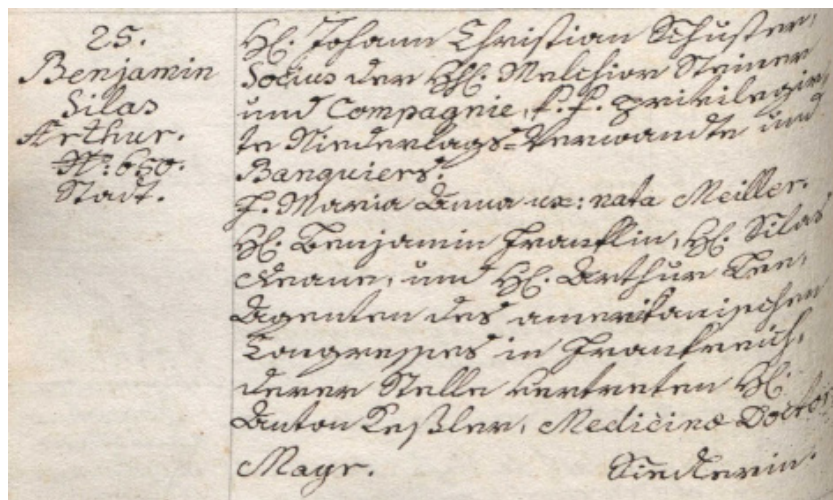 25.
Benjamin
Silas
Arthur.
N: 650.
Stadt.
H. Johann Christian Schuster,
Socius der HH. Melchior Steiner
und Compagnie, k. k. privilegir-
te Niederlags=Verwandte und
Banquiers.
F. Maria Anna ux: nata Meiller.
H. Benjamin Franklin, H. Silas
Deane, und H. Arthur Lee,
Agenten des amerikanischen
Congresses in Frankreich,
derer Stelle vertreten H.
Anton Keßler, Medicinæ Doctor,
Mayr.